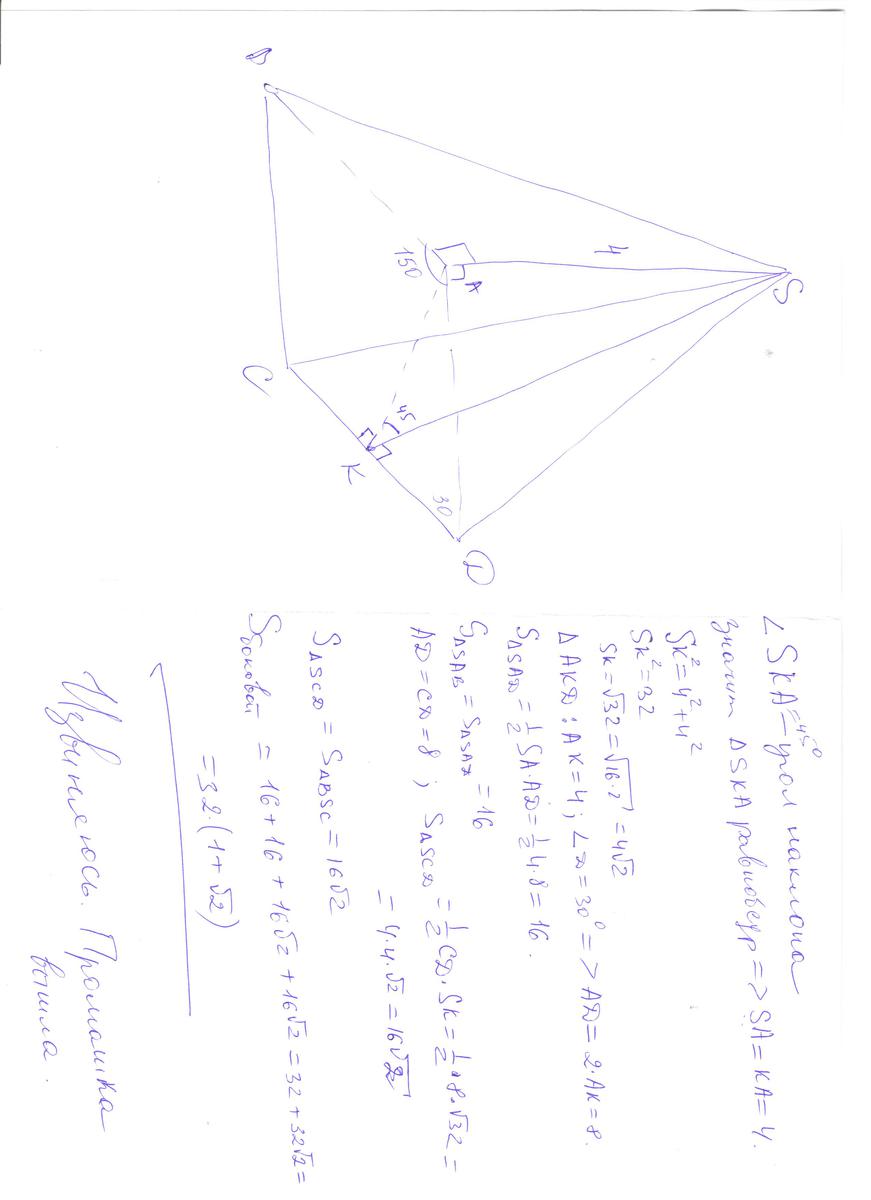 S
4
A
150
B
C
45
K
30
D
∠SKA=45° – угол наклона
значит ΔSKA равнобедр => SA = KA = 4.
SK² = 4² + 4²
SK² = 32
SK = √32 = √16·2 = 4√2
ΔAKD: AK = 4; ∠D = 30° => AD = 2·AK = 8.
SΔSAD = 1/2 SA·AD = 1/2 4·8 = 16.
SΔSAB = SΔSAD = 16
AD = CD = 8; SΔSCD = 1/2 CD·SK = 1/2·8·√32 =
= 4·4·√2 = 16√2
SΔSCD = SΔBSC = 16√2
Sбоковой = 16 + 16 + 16√2 + 16√2 = 32 + 32√2 =
= 32·(1+√2)
Извиняюсь. Промашка
вышла.